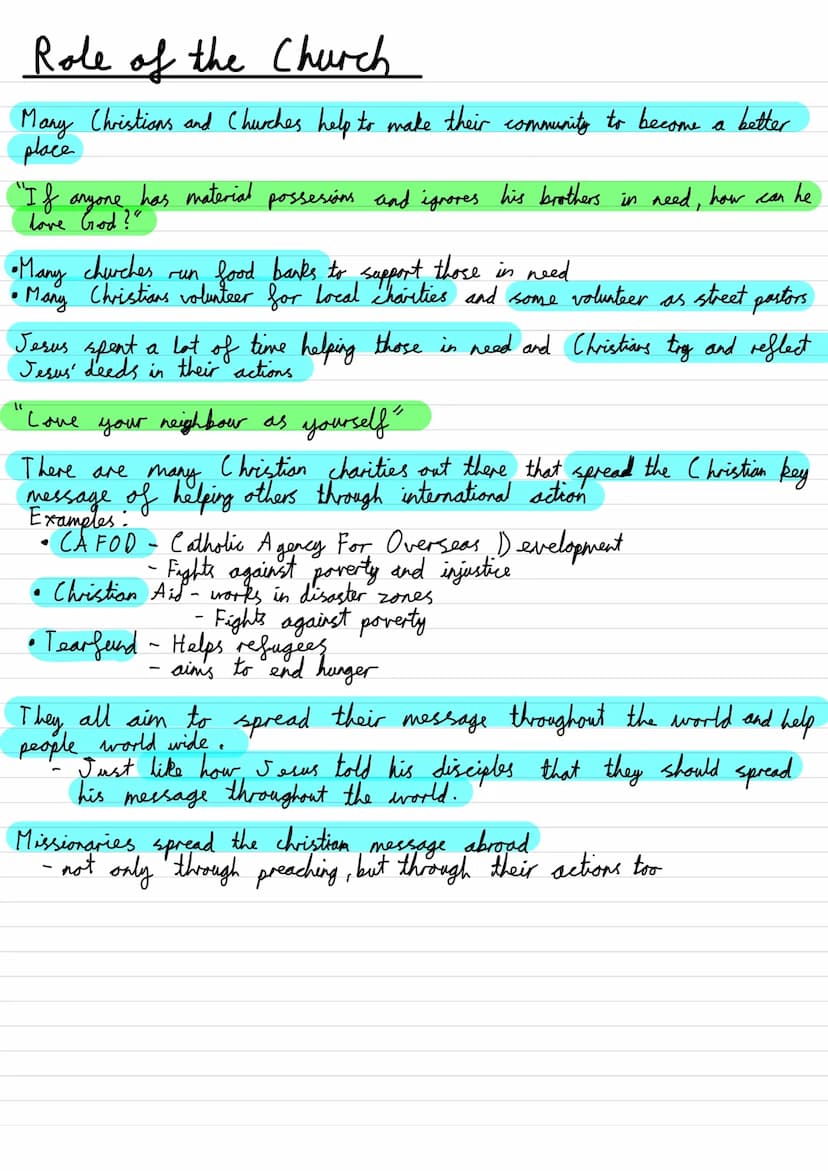 Role of the Church
Many Christians and Churches help to make their community to become a better
place
"If anyone has material possesions and ignores his brothers in need, how can he
love God?"
•Many churches run food banks to support those in need
• Many Christians volunteer for local charities and some volunteer as street pastors
Jesus spent a lot of time helping those in need and Christians try and reflect
Jesus' deeds in their actions
"Love your neighbour as yourself"
There are many Christian charities out there that spread the Christian key
message of helping others through international action
Examples:
• CAFOD - Catholic Agency For Overseas Development
- Fights against poverty and injustice
• Christian Aid - works in disaster zones
- Fights against poverty
• Tearfund - Helps refugees
- aims to end hunger
They all aim to spread their message throughout the world and help
people world wide.
- Just like how Jesus told his disciples that they should spread
his message throughout the world.
Missionaries spread the christian message abroad
- not only through preaching, but through their actions too